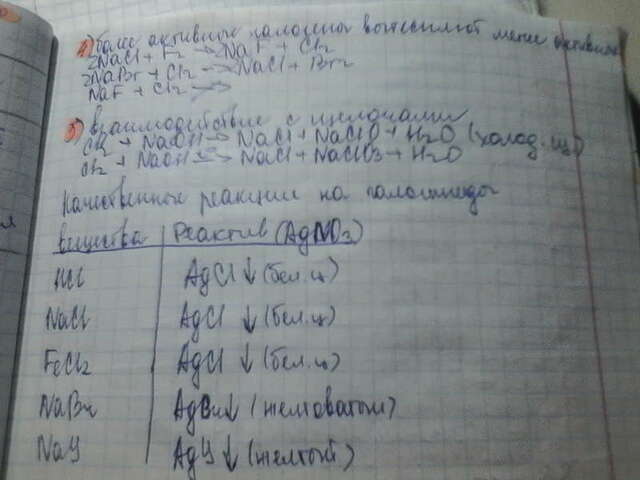 4) более активные галогены вытесняют менее активные
2NaCl + F2 → NaF + Cl2
2NaBr + Cl2 → NaCl + Br2
NaF + Cl2 →
5) взаимодействие с щелочами
Cl2 + NaOH → NaCl + NaClO + H2O (холод. щ)
Cl2 + NaOH → NaCl + NaClO3 + H2O
Качественные реакции на галогениды
вещества | Реактив (AgNO3)
HCl | AgCl ↓ (бел. ц)
NaCl | AgCl ↓ (бел. ц)
FeCl2 | AgCl ↓ (бел. ц)
NaBr | AgBr ↓ (желтоватый)
NaY | AgY ↓ (желтый)